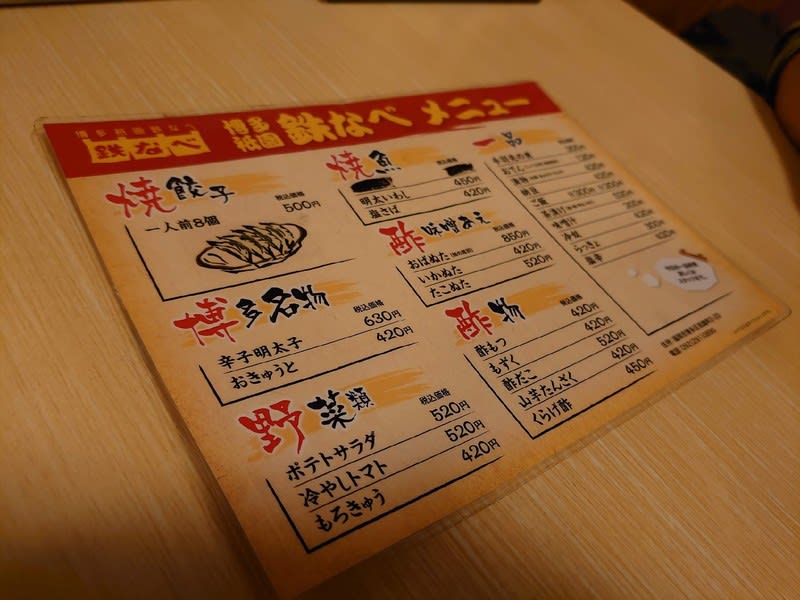 博多祇園鉄なべ
鉄なべ
博多祇園 鉄なべ メニュー
焼餃子 税込価格
一人前8個 500円
博多名物 税込価格
辛子明太子 630円
おきゅうと 420円
野菜類 税込価格
ポテトサラダ 520円
冷やしトマト 520円
もろきゅう 420円
焼魚 税込価格
明太いわし 450円
塩さば 420円
酢味噌あえ 税込価格
おばぬた 850円
いかぬた 420円
たこぬた 520円
酢物 税込価格
酢もつ 420円
もずく 420円
酢だこ 520円
山芋たんざく 420円
くらげ酢 450円
一品 税込価格
おでん
漬物
納豆
ご飯
茶漬け
味噌汁
冷奴
らっきょ